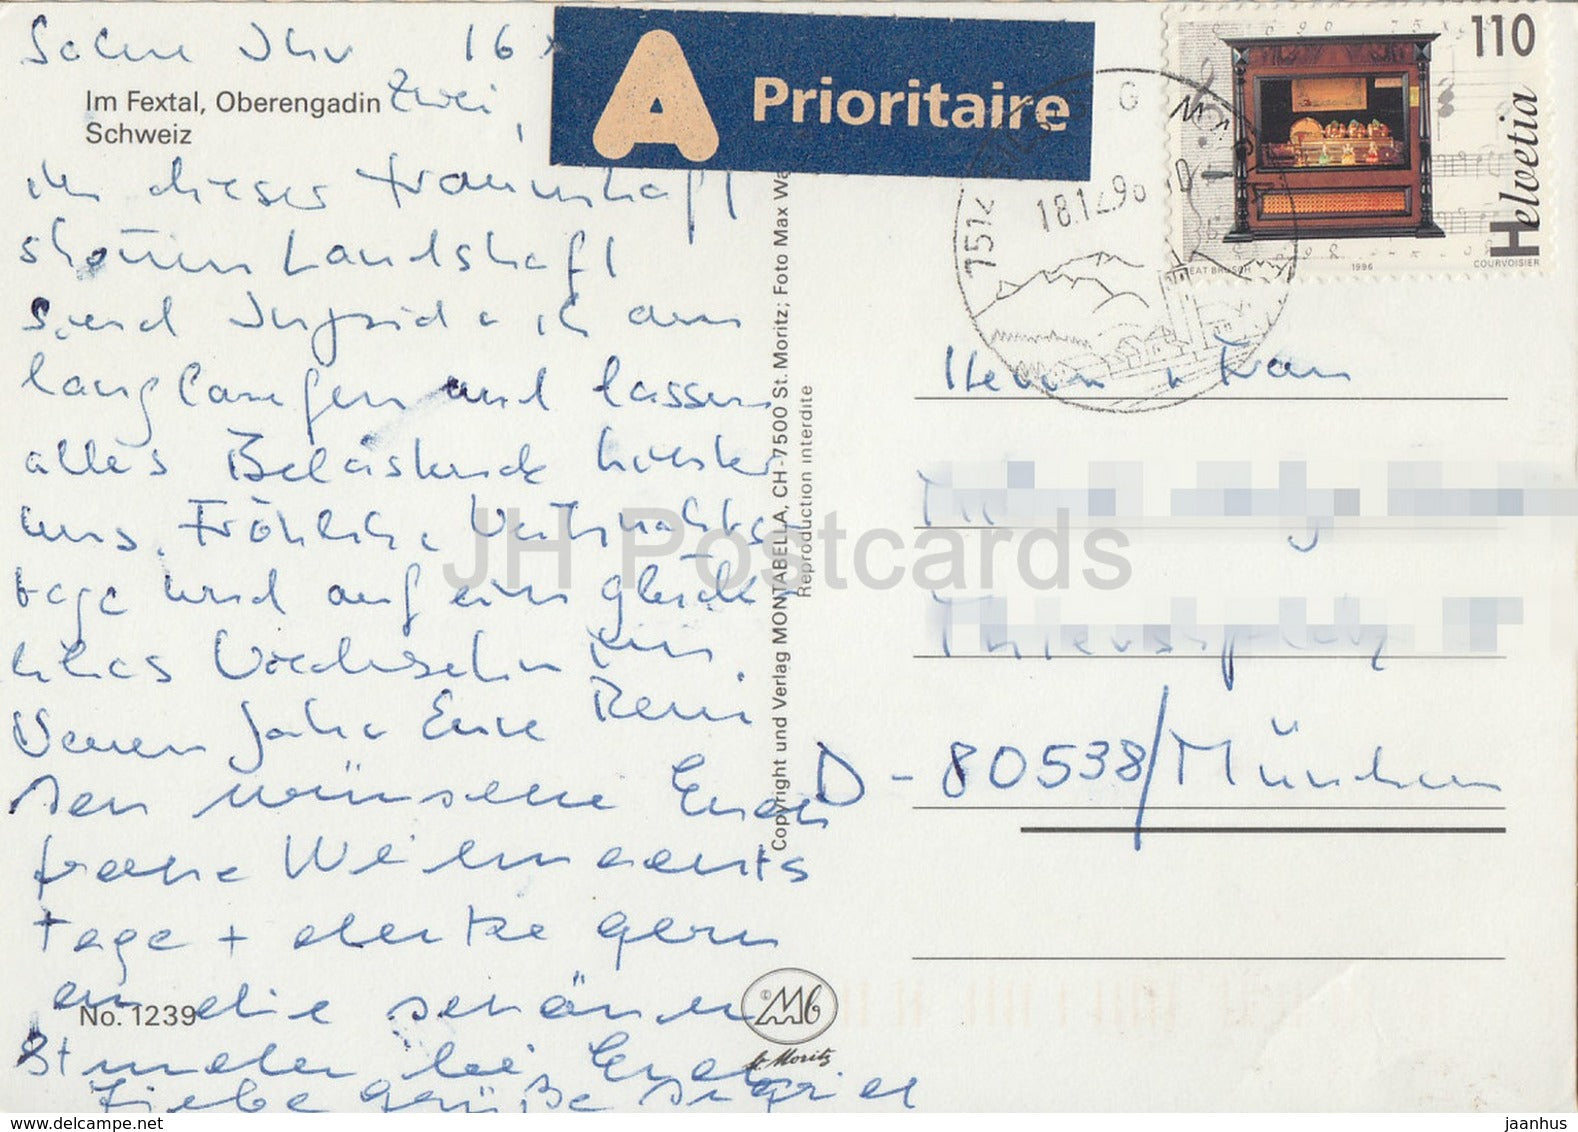 Ihr 16
Im Fextal, Oberengadin
Schweiz
Zwei,
in dieser traumhaft
shönen Landshaft
sind Ingrid + ich am
langlaufen und lassen
alles Belastende hinter
uns. Fröhliche Weihnachts-
tage und auf ein glück-
liches
Neuen Jahr Eure Reni
wünschen Euch
frohe Weihnachts
tage + denke gern
an die schönen
No. 1239
Stunden bei Euch
Liebe Grüße Ingrid
Copyright und Verlag MONTABELLA, CH-7500 St. Moritz; Foto Max We
Reproduction interdite
Mb
St. Moritz
A Prioritaire
110
Helvetia
BEAT BRÜSCH 1996 COURVOISIER
7514
18.12.96
Herrn + Frau
D - 80538/München
JH Postcards
www.delcampe.net
jaanhus